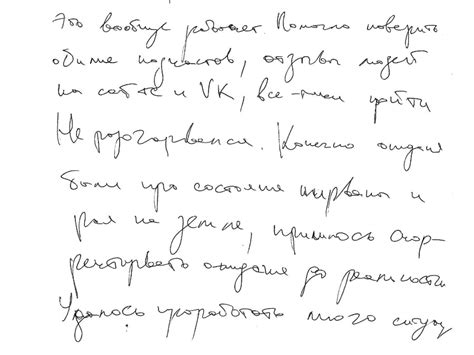 Это вообще работает. Помогло поверить
обилие подкастов, отзывы людей
на сайте и VK, все-таки пойти
Не разочаровался. Конечно ожидания
были про состояние нирваны и
рая на земле, пришлось скор-
ректировать ожидание до реальности
Удалось проработать много ситуац